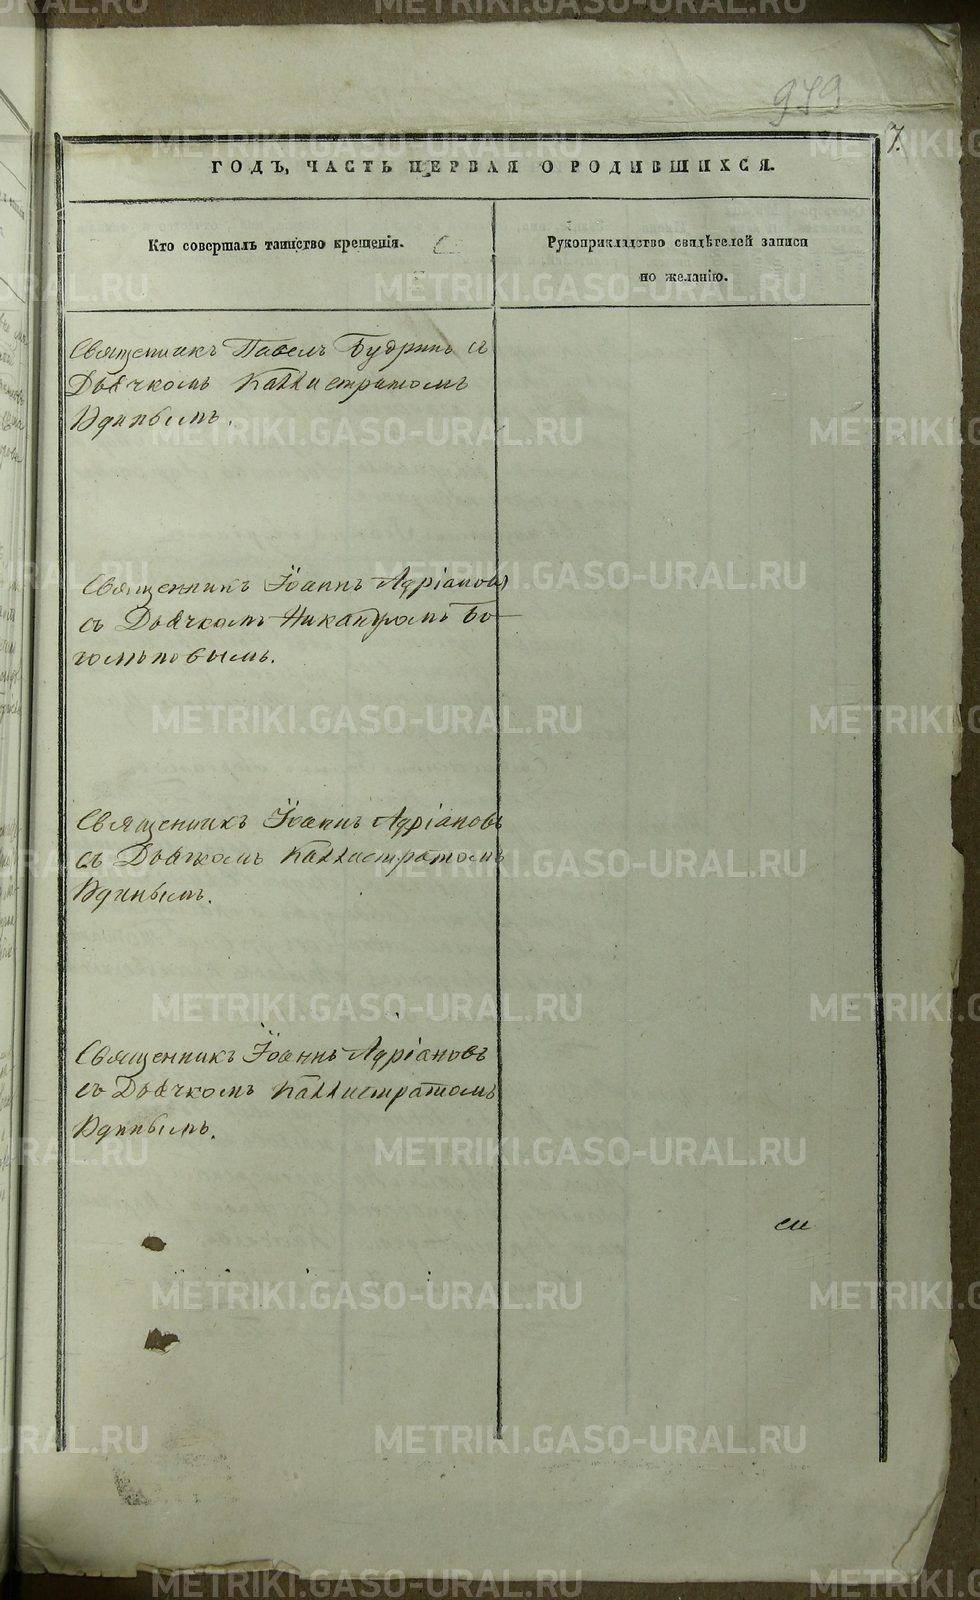 979
7.
ГОДЪ, ЧАСТЬ ПЕРВАЯ О РОДИВШИХСЯ.
Кто совершалъ таинство крещенія.
Рукоприкладство свидѣтелей записи
по желанію.
Священникъ Павелъ Будринъ съ
Дьячкомъ Каллистратомъ
Удинымъ.
Священникъ Іоаннъ Адріановъ
съ Дьячкомъ Никандромъ Бо
гомоловымъ.
Священникъ Іоаннъ Адріановъ
съ Дьячкомъ Каллистратомъ
Удинымъ.
Священникъ Іоаннъ Адріановъ
съ Дьячкомъ Каллистратомъ
Удинымъ.
METRIKI.GASO-URAL.RU